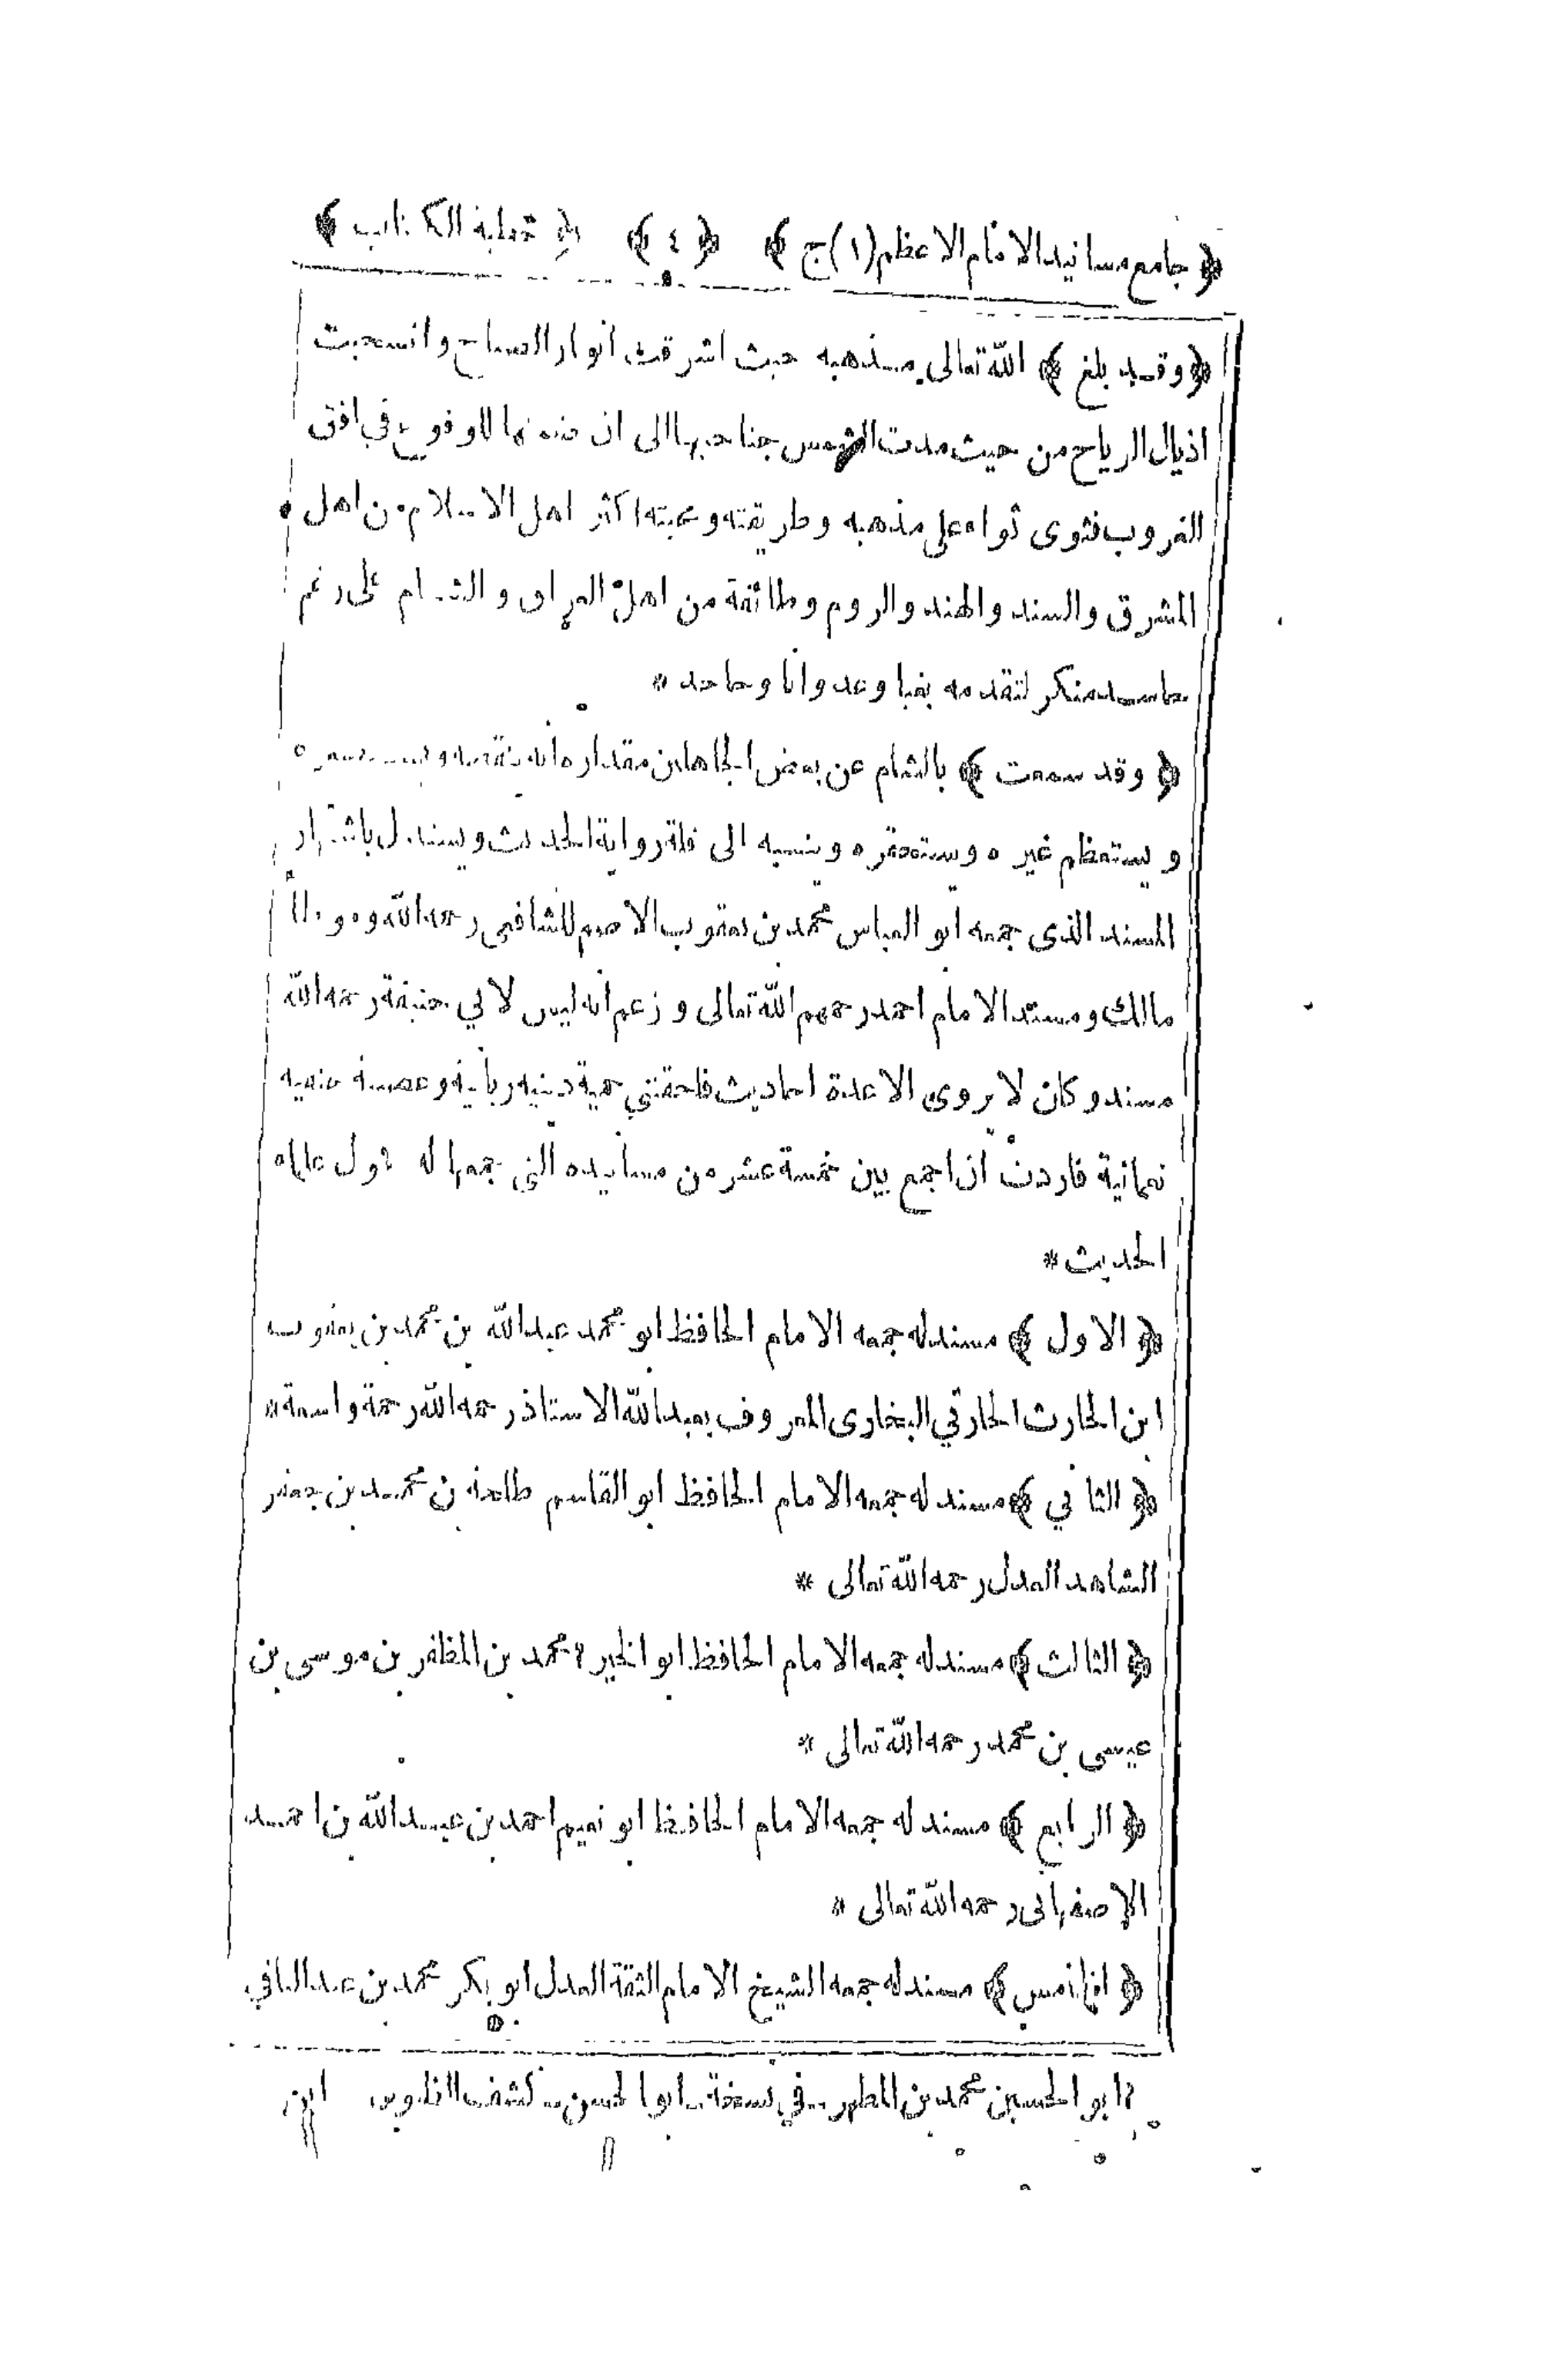 ﴿ جامع مسانيد الامام الاعظم (١) ج ﴾ ﴿ ٤ ﴾ ﴿ خطبة الكتاب ﴾
﴿ وقد بلغ ﴾ الله تعالى بمذهبه حيث اشرقت انوار الصباح وانسحبت
اذيال الرياح من حيث مدت الشمس جناحيها الى ان للوقوع في افق
الغروب فثوى ثواه على مذهبه وطريقته ومحبته اكثر اهل الاسلام من اهل
المشرق والسند والهند والروم وطائفة من اهل العراق والشام على رغم
حاسد منكر لتقدمه بغيا وعدوانا وجاحد *
﴿ وقد سمعت ﴾ بالشام عن بعض الجاهلين مقداره انه ينقصه ويستصغره
ويستعظم غيره ويستحقره وينسبه الى قلة رواية الحديث ويستدل باشتهار
المسند الذى جمعه ابو العباس محمد بن يعقوب الاصم للشافعي رحمه الله وموطأ
مالك ومسند الامام احمد رحمهم الله تعالى وزعم انه ليس لابي حنيفة رحمه الله
مسند وكان لا يروى الا عدة احاديث فلحقتني حمية دينيه ربانيه وعصبية حنفيه
نعمانية فاردت ان اجمع بين خمسة عشر من مسانيده التي جمعها له فحول علماء
الحديث *
﴿ الاول ﴾ مسند له جمعه الامام الحافظ ابو محمد عبد الله بن محمد بن يعقوب
ابن الحارث الحارثي البخارى المعروف بعبد الله الاستاذ رحمه الله رحمة واسعة *
﴿ الثاني ﴾ مسند له جمعه الامام الحافظ ابو القاسم طلحة بن محمد بن جعفر
الشاهد العدل رحمه الله تعالى *
﴿ الثالث ﴾ مسند له جمعه الامام الحافظ ابو الخير ٢ محمد بن المظفر بن موسى بن
عيسى بن محمد رحمه الله تعالى *
﴿ الرابع ﴾ مسند له جمعه الامام الحافظ ابو نعيم احمد بن عبد الله بن احمد
الاصفهانى رحمه الله تعالى *
﴿ الخامس ﴾ مسند له جمعه الشيخ الامام الثقة العدل ابو بكر محمد بن عبد الباقي
٢ ابو الحسين محمد بن المطهر - في نسخة - ابوا لحسن - كشف الظنون ابن